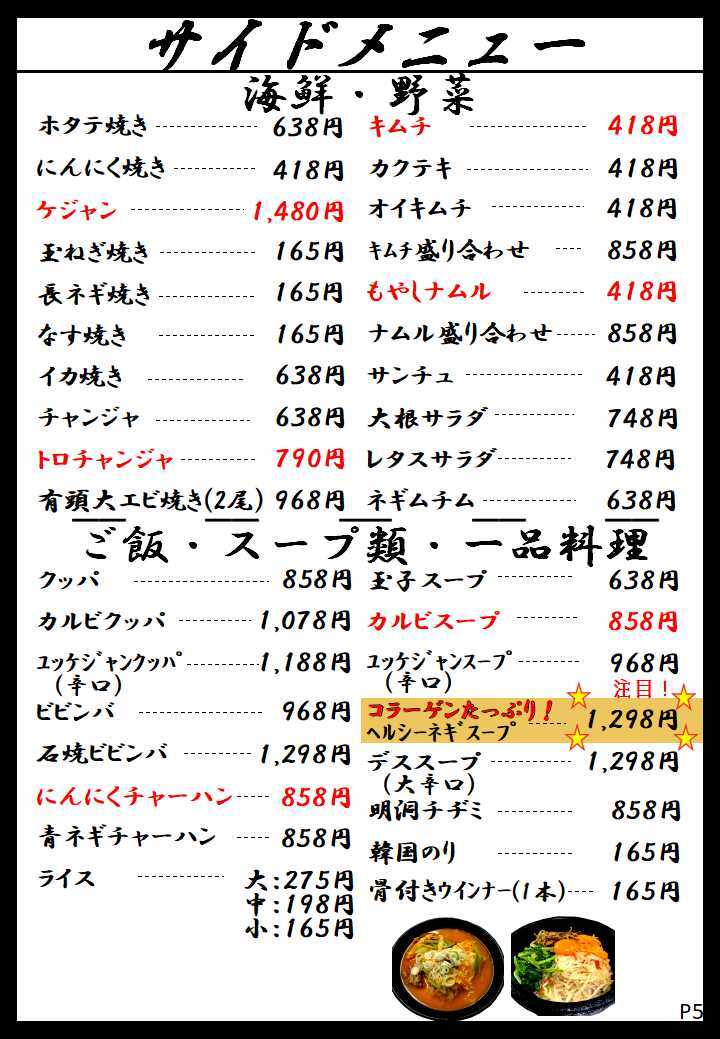 サイドメニュー
海鮮・野菜
ホタテ焼き 638円
にんにく焼き 418円
ケジャン 1,480円
玉ねぎ焼き 165円
長ネギ焼き 165円
なす焼き 165円
イカ焼き 638円
チャンジャ 638円
トロチャンジャ 790円
有頭大エビ焼き(2尾) 968円
キムチ 418円
カクテキ 418円
オイキムチ 418円
キムチ盛り合わせ 858円
もやしナムル 418円
ナムル盛り合わせ 858円
サンチュ 418円
大根サラダ 748円
レタスサラダ 748円
ネギムチム 638円
ご飯・スープ類・一品料理
クッパ 858円
カルビクッパ 1,078円
ユッケジャンクッパ 1,188円
(辛口)
ビビンバ 968円
石焼ビビンバ 1,298円
にんにくチャーハン 858円
青ネギチャーハン 858円
ライス 大:275円
中:198円
小:165円
玉子スープ 638円
カルビスープ 858円
ユッケジャンスープ 968円
(辛口)
注目!
コラーゲンたっぷり!
ヘルシーネギスープ 1,298円
デススープ 1,298円
(大辛口)
明洞チヂミ 858円
韓国のり 165円
骨付きウインナー(1本) 165円
P5